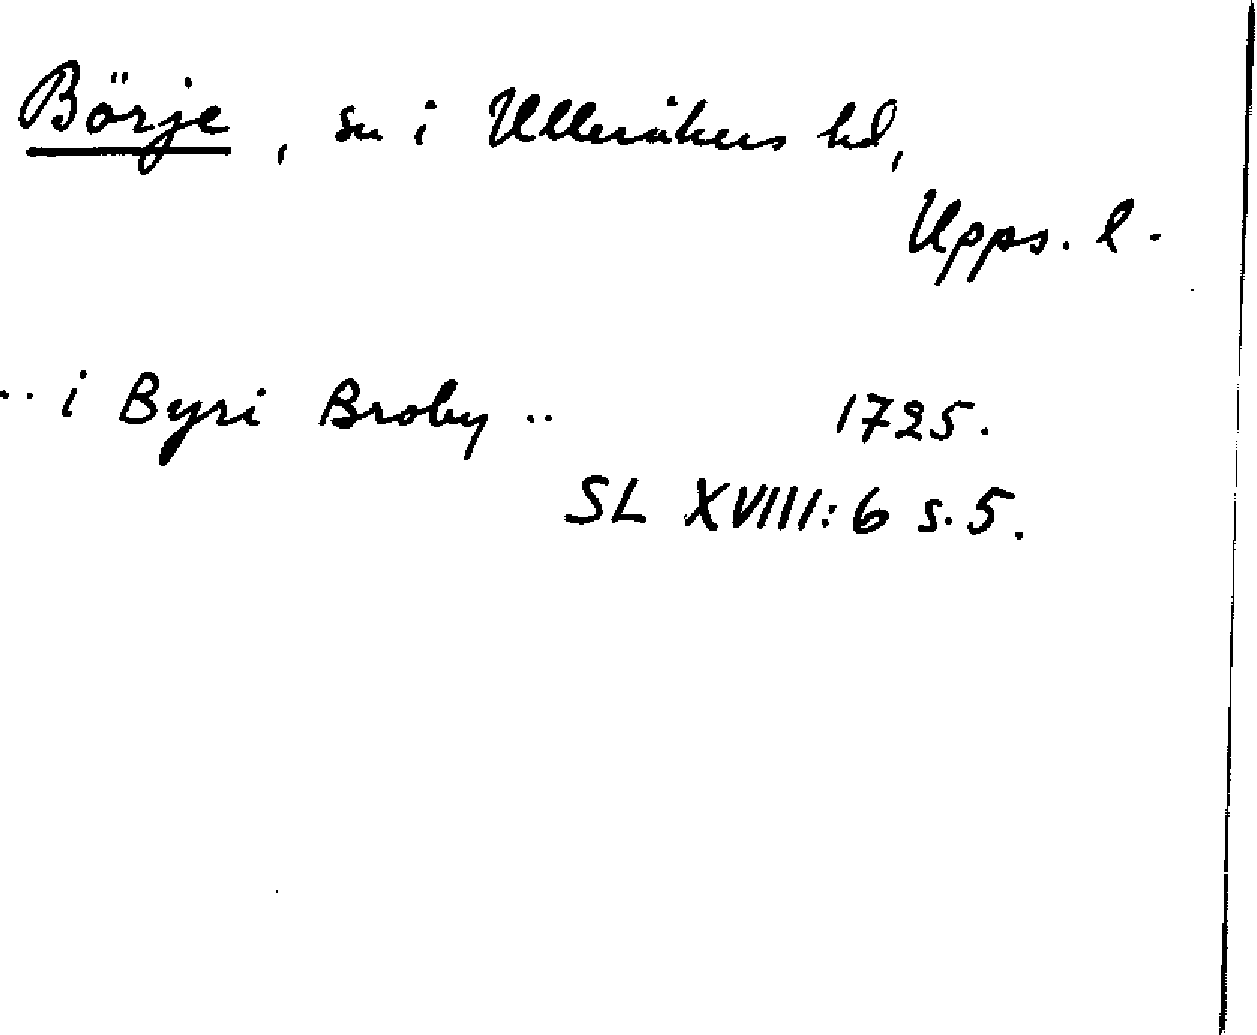 Börje, sn i Ulleråkers hd,
Upps. l.
.. i Byri Broby .. 1725.
SL XVIII:6 s. 5.